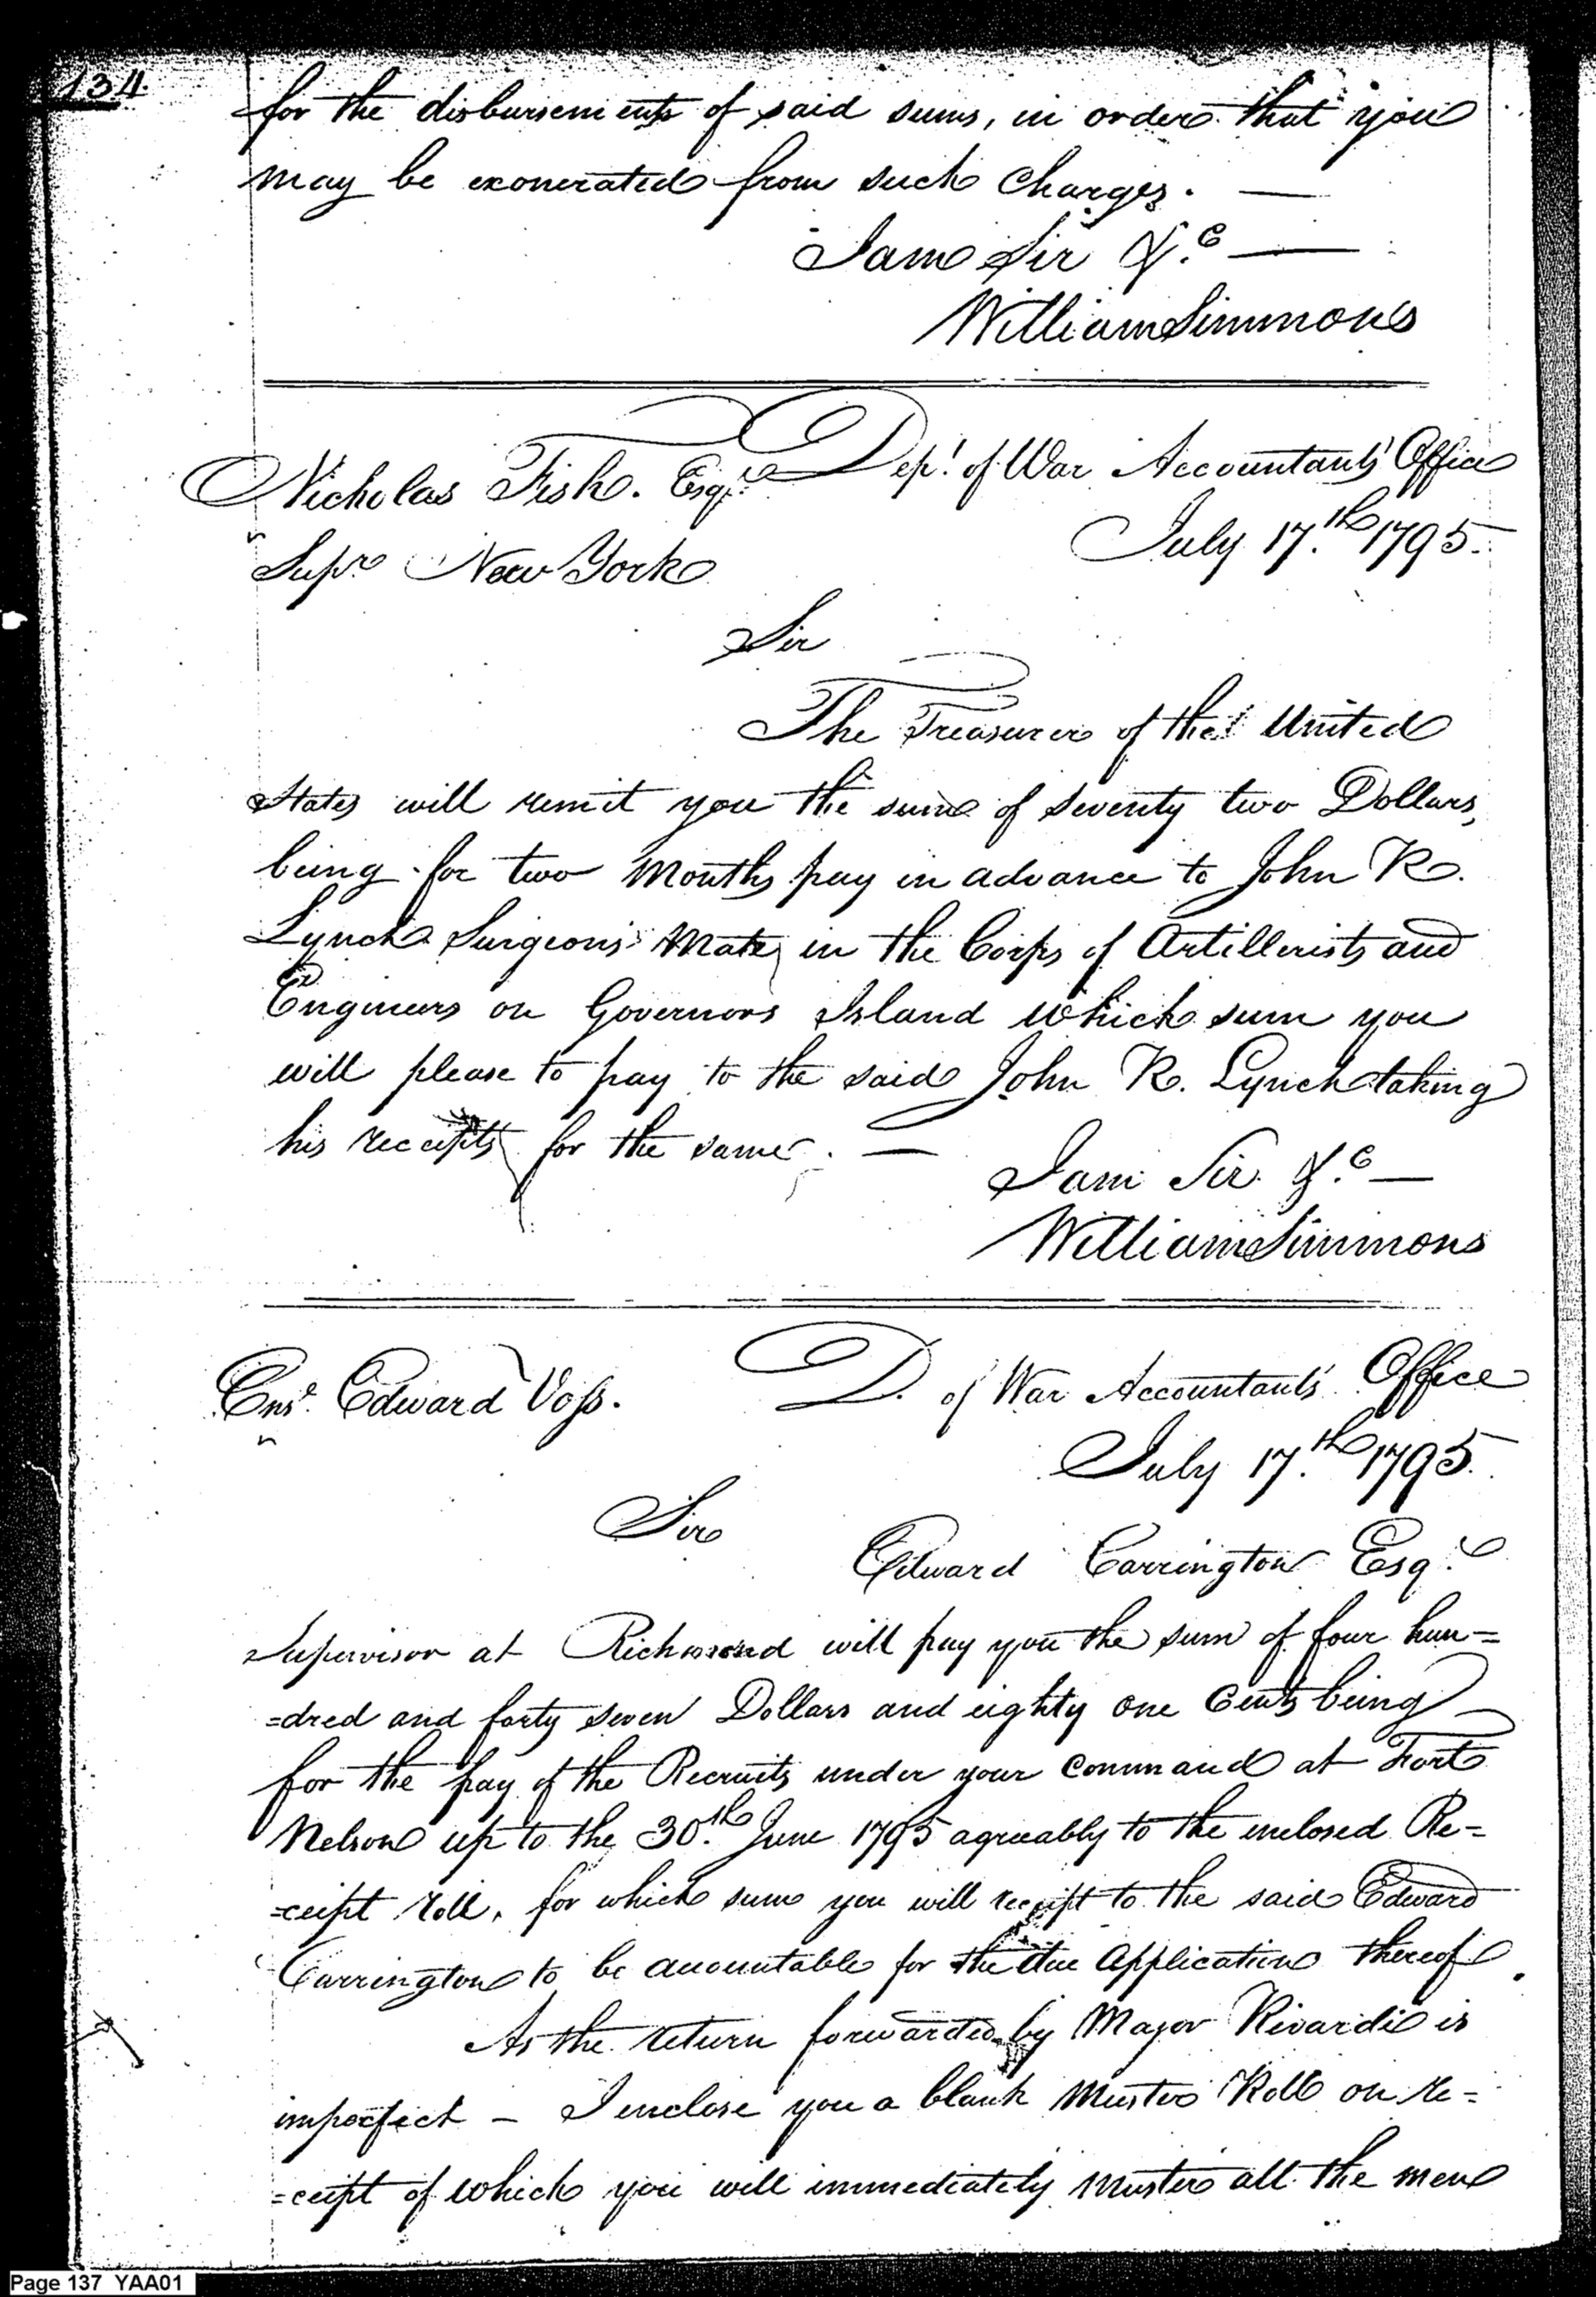 134.
for the disbursements of said sums, in order that you
may be exonerated from such Charges. —
I am Sir &.c —
William Simmons
Dep.t of War Accountants' Office
Nicholas Fish. Esq.re
July 17.th 1795.
Supr New York
Sir
The Treasurer of the United
States will remit you the sum of seventy two Dollars,
being for two Months pay in advance to John R.
Lynch Surgeons Mate in the Corps of Artillerists and
Engineers on Governors Island which sum you
will please to pay to the said John R. Lynch taking
his receipts for the same. —
I am Sir &.c —
William Simmons
D. of War Accountants' Office
Ens.n Edward Voss.
July 17.th 1795.
Sir
Edward Carrington Esq.r
Supervisor at Richmond will pay you the sum of four hun=
=dred and forty seven Dollars and eighty one Cents being
for the pay of the Recruits under your Command at Fort
Nelson up to the 30.th June 1795 agreeably to the enclosed Re=
=ceipt roll, for which sum you will receipt to the said Edward
Carrington to be accountable for the due Application thereof.
As the return forwarded by Major Rivardi is
imperfect – I enclose you a blank Muster Roll on re=
=ceipt of which you will immediately Muster all the men
Page 137 YAA01